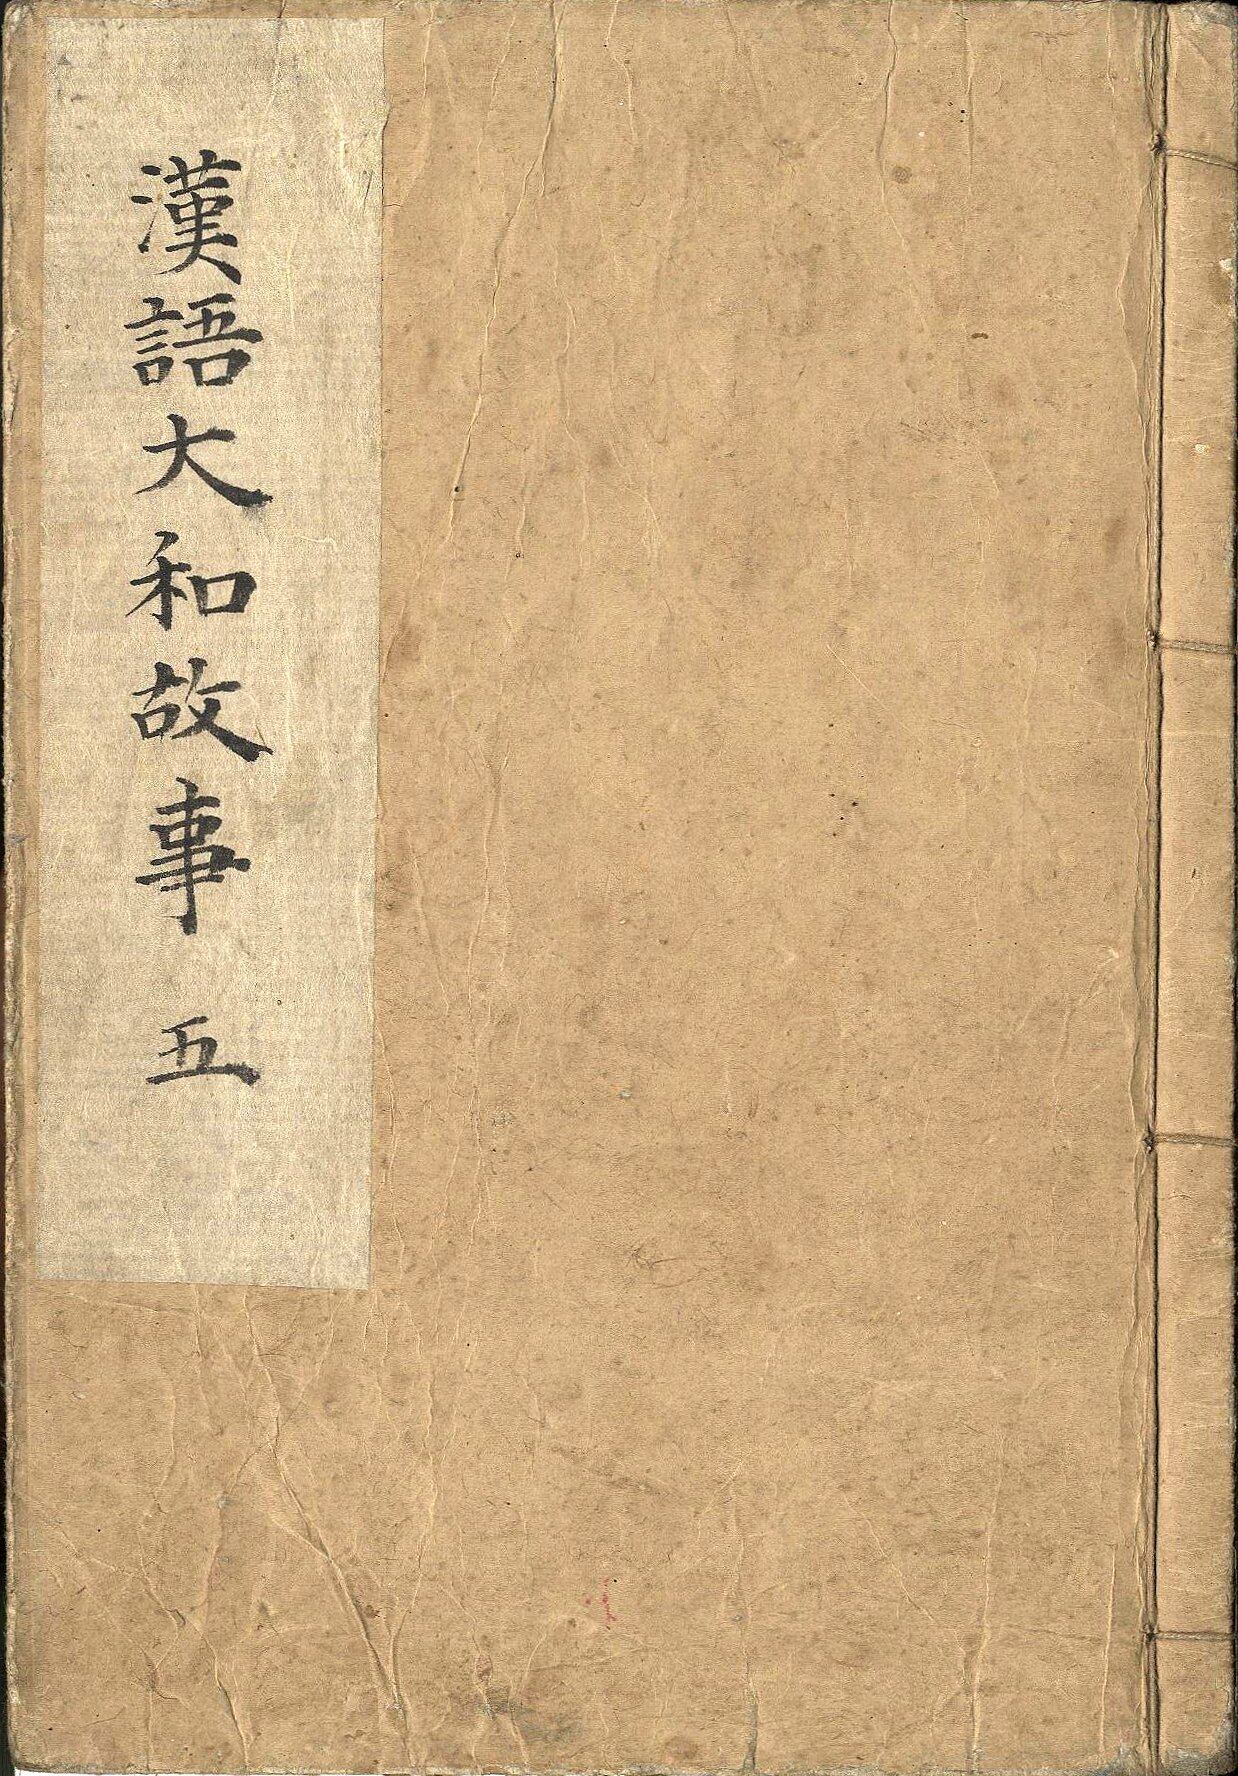 漢語大和故事 五